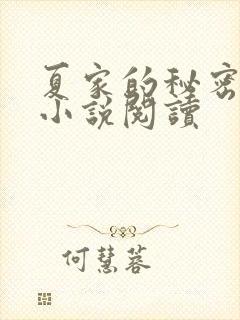 夏家的秘密
小說閱讀
何慧蓉